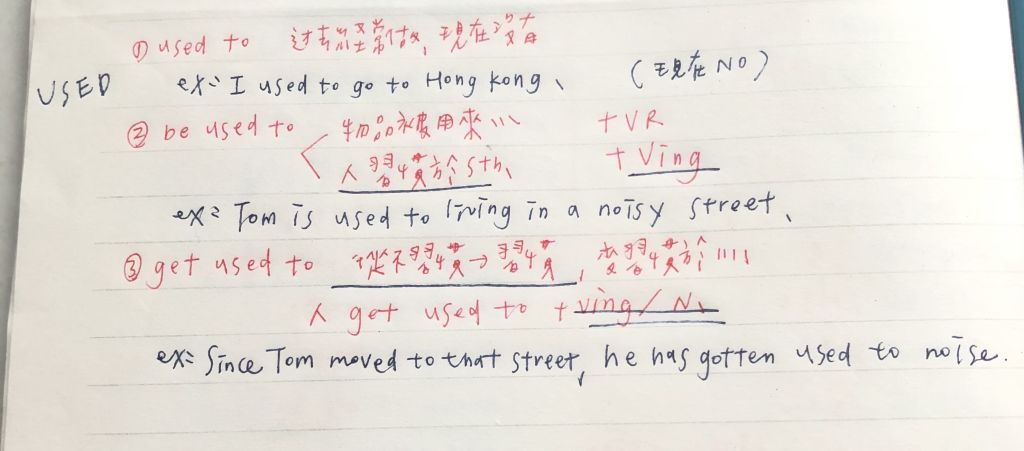 ① used to 過去經常做,現在沒有
USED ex: I used to go to Hong Kong、 (現在 NO)
② be used to 物品被用來... + VR
人習慣於 sth、 + Ving
ex: Tom is used to living in a noisy street、
③ get used to 從不習慣→習慣, 變習慣於....
人 get used to + ving / N、
ex: Since Tom moved to that street, he has gotten used to noise.